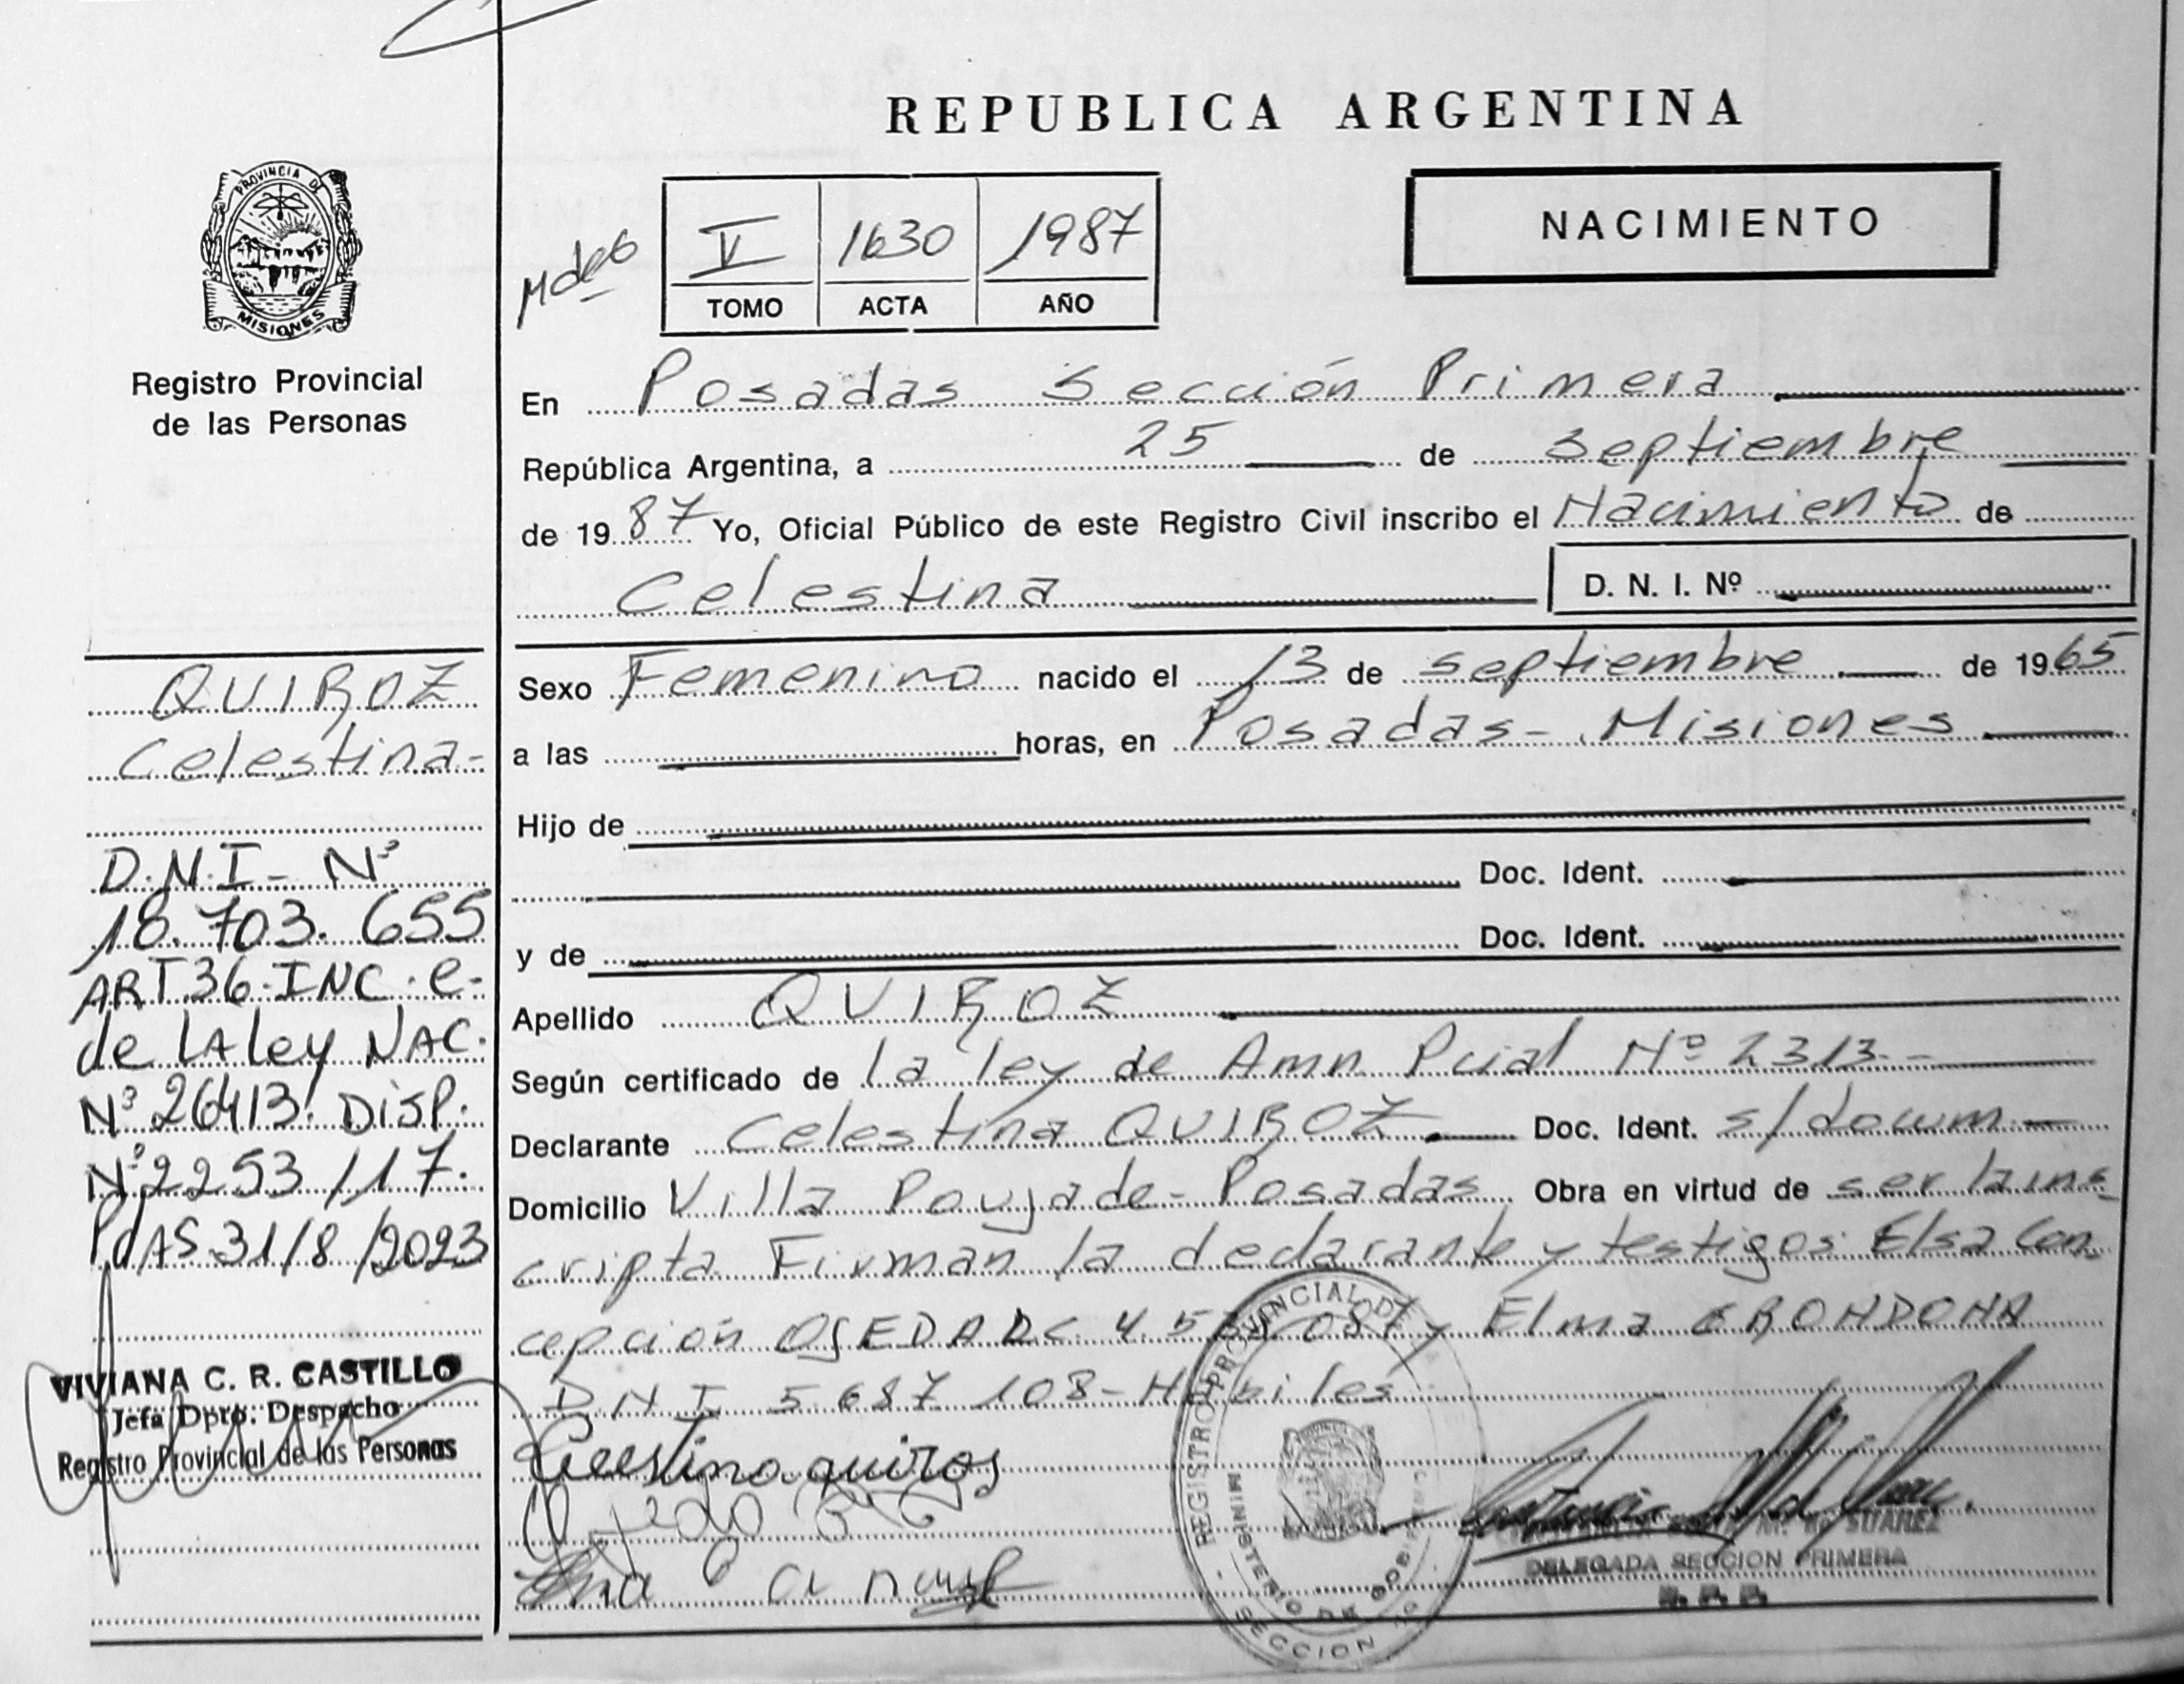 REPUBLICA ARGENTINA
PROVINCIA DE
MISIONES
Registro Provincial
de las Personas
V 1630 1987
TOMO ACTA AÑO
NACIMIENTO
En Posadas Sección Primera
República Argentina, a 25 de septiembre
de 1987 Yo, Oficial Público de este Registro Civil inscribo el Nacimiento de
Celestina D. N. I. Nº
Sexo Femenino nacido el 13 de septiembre de 1965
a las horas, en Posadas - Misiones
Hijo de
Doc. Ident.
y de Doc. Ident.
Apellido QUIROZ
Según certificado de la ley de Amn Pcial Nº 2313.-
Declarante Celestina QUIROZ Doc. Ident. s/docum
Domicilio Villa Poujade - Posadas Obra en virtud de ser la ins
cripta Firman la declarante y testigos Elsa Con
cepción OJEDA DC. 4.5 087 y Elma GRONDONA
D.N.I 5 687 108 - Hábiles
Celestina quiros
QUIROZ
Celestina-
D.N.I - Nº
18.703.655
ART.36-INC.e-
de LA ley NAC.
Nº 26413. DISP.
Nº 2253/17.
PdAS 31/8/2023
VIVIANA C. R. CASTILLO
Jefa Dpto. Despacho
Registro Provincial de las Personas
REGISTRO PROVINCIAL DE
MINISTERIO DE GOBIERNO
SECCION 1º
SUAREZ
DELEGADA SECCION PRIMERA
R. P. P.